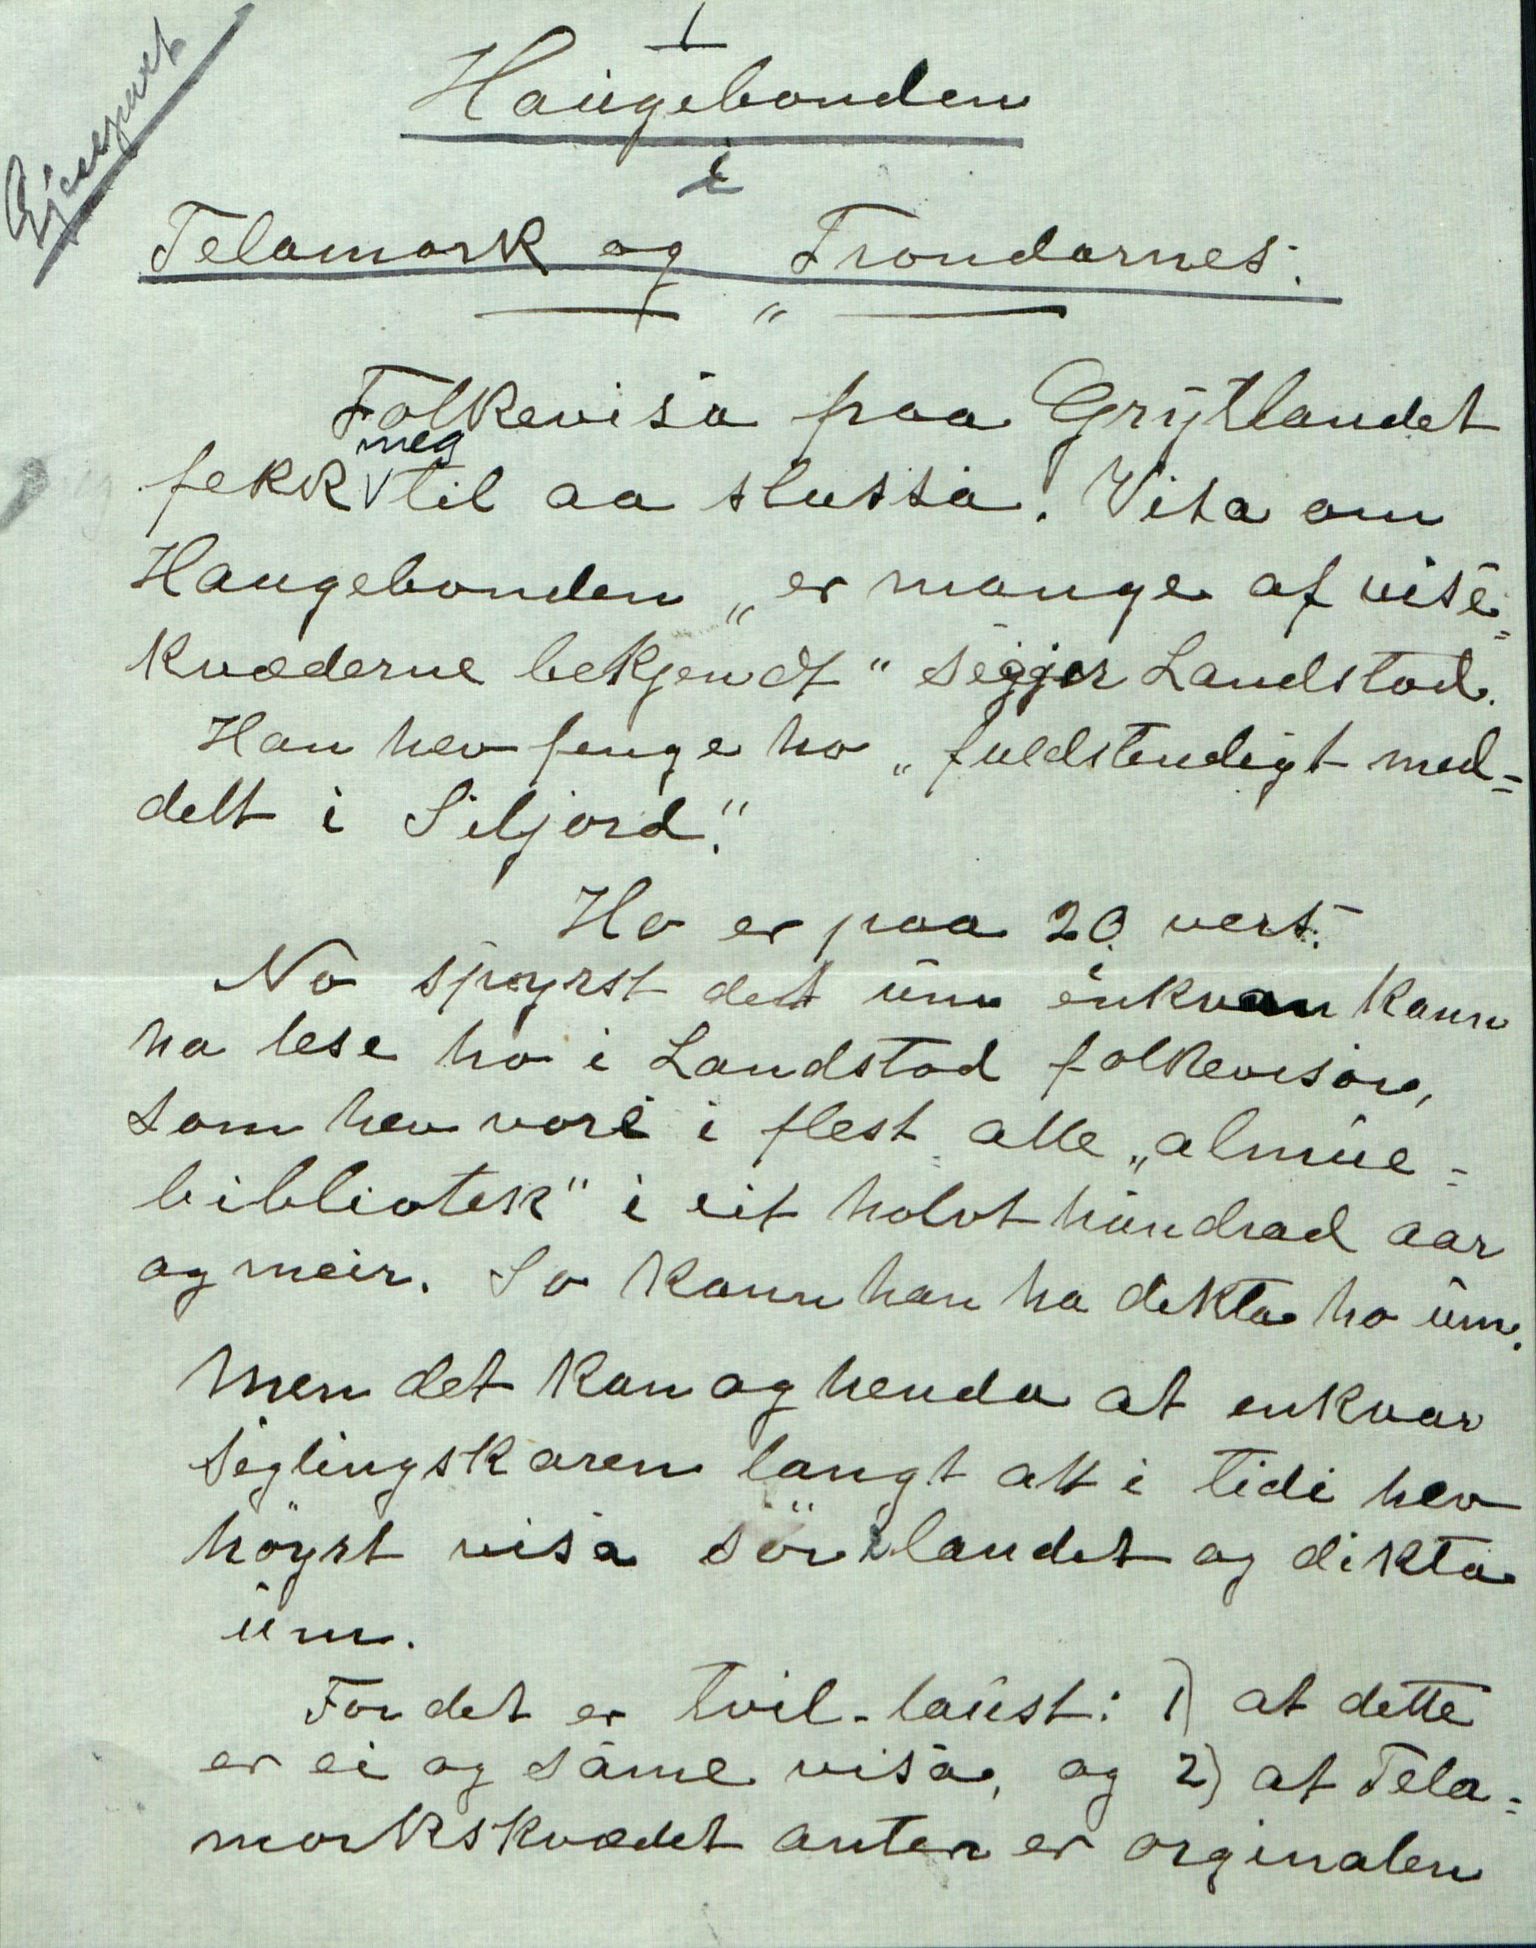 1
Haugebonden
i
Telamork og Trondarnes.
"
Folkevisa paa Grytlandet
fekk meg til aa stussa. Visa om
Haugebonden „er mange af vise-
kvæderne bekjendt" segjer Landstad.
Han hev fenge ho „fuldstendigt med-
delt i Siljord".
Ho er paa 20 vers.
No spyrst det um einkvan kann
ha lese ho i Landstad folkevisor,
som hev vori i flest alle „almue-
bibliotek" i eit halvt hundrad aar
og meir. So kann han ha dikta ho um.
Men det kan og henda at enkvar
siglingskaren langt att i tidi hev
höyrt visa sör i landet og dikta
um.
For det er tvil-laust: 1) at dette
er ei og same visa, og 2) at Tela-
morkskvædet anten er orginalen